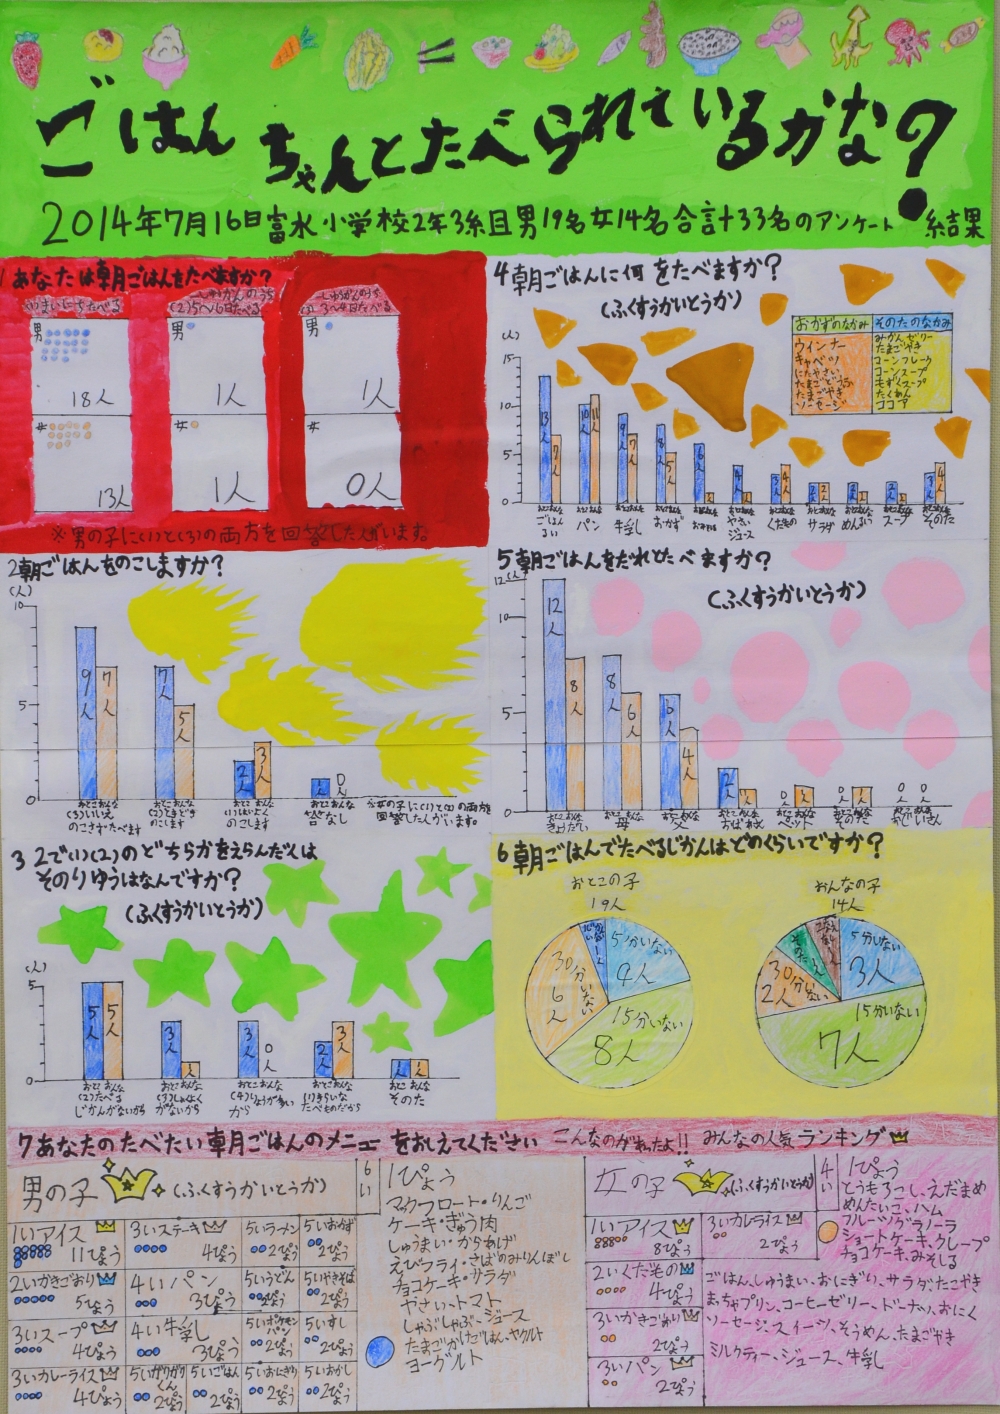 ごはんちゃんとたべられているかな?
2014年7月16日富水小学校2年3組男19名女14名合計33名のアンケート結果
1あなたは朝ごはんをたべますか?
(1)まいにちたべる
一しゅうかんのうち
(2)5〜6日たべる
一しゅうかんのうち
(3)3〜4日たべる
男
18人
男
1人
男
1人
女
13人
女
1人
女
0人
※男の子に(1)と(3)の両方を回答した人がいます。
2朝ごはんをのこしますか?
(人)
10
5
0
9人
7人
7人
5人
2人
3人
1人
0人
おとこ おんな
(3)いいえ
のこさずたべます
おとこ おんな
(2)ときどき
のこします
おとこ おんな
(1)はいよく
のこします
おとこ おんな
答なし
※女の子に(1)と(2)の両方を
回答した人がいます。
3 2で(1)(2)のどちらかをえらんだ人は
そのりゆうはなんですか?
(ふくすうかいとうか)
(人)
5
0
5人
5人
3人
1人
3人
0人
2人
3人
1人
1人
おとこ おんな
(2)たべる
じかんがないから
おとこ おんな
(3)しょくよく
がないから
おとこ おんな
(4)りょうが多い
から
おとこ おんな
(1)きらいな
たべものだから
おとこ おんな
そのた
4朝ごはんに何をたべますか?
(ふくすうかいとうか)
(人)
15
10
5
0
おかずのなかみ
そのたのなかみ
ウインナー
キャベツ
にたやさい
たまごやき
ソーセージ
みかんゼリー
たまごやき
コーンフレーク
コーンスープ
もずくスープ
たくあん
ココア
13人
7人
10人
11人
9人
7人
8人
5人
6人
1人
4人
1人
3人
4人
2人
2人
2人
1人
2人
1人
3人
4人
ごはんるい
パン
牛乳
おかず
やさいジュース
くだもの
サラダ
めんるい
スープ
そのた
5朝ごはんをだれとたべますか?
(ふくすうかいとうか)
12(人)
10
5
0
12人
8人
8人
6人
6人
4人
2人
1人
0人
1人
0人
1人
0人
0人
きょうだい
母
父
おばあさん
ペット
そのた
おじいさん
6朝ごはんでたべるじかんはどのくらいですか?
おとこの子
19人
5分いない
4人
15分いない
8人
30分いない
6人
1人
おんなの子
14人
5分いない
3人
15分いない
7人
30分いない
2人
そのた
1人
1人
7あなたのたべたい朝ごはんのメニューをおしえてください こんなのがれたよ!! みんなの人気ランキング
男の子
(ふくすうかいとうか)
1いアイス
11ぴょう
3いステーキ
4ぴょう
5いラーメン
2ぴょう
5いおかず
2ぴょう
2いかきごおり
5ぴょう
4いパン
3ぴょう
5いうどん
2ぴょう
5いやきそば
2ぴょう
3いスープ
4ぴょう
4い牛乳
3ぴょう
5いポケモンパン
2ぴょう
5いすし
2ぴょう
3いカレーライス
4ぴょう
5いガリガリくん
2ぴょう
5いごはん
2ぴょう
5いおにぎり
2ぴょう
5いおかし
2ぴょう
6い
1ぴょう
マックフロート・りんご
ケーキ・ぎゅう肉
しゅうまい・からあげ
えびフライ・さばのみりんぼし
チョコケーキ・サラダ
やさい・トマト
しゃぶしゃぶ・ジュース
たまごかけごはん・ヤクルト
ヨーグルト
女の子
(ふくすうかいとうか)
1いアイス
8ぴょう
3いカレーライス
2ぴょう
2いくだもの
4ぴょう
3いかきごおり
2ぴょう
3いパン
2ぴょう
4い
1ぴょう
とうもろこし、えだまめ
めんたいこ、ハム
フルーツグラノーラ
ショートケーキ、クレープ
チョコケーキ、みそしる
ごはん、しゅうまい、おにぎり、サラダ、たこやき
まっちゃプリン、コーヒーゼリー、ドーナッツ、おにく
ソーセージ、スイーツ、そうめん、たまごやき
ミルクティー、ジュース、牛乳